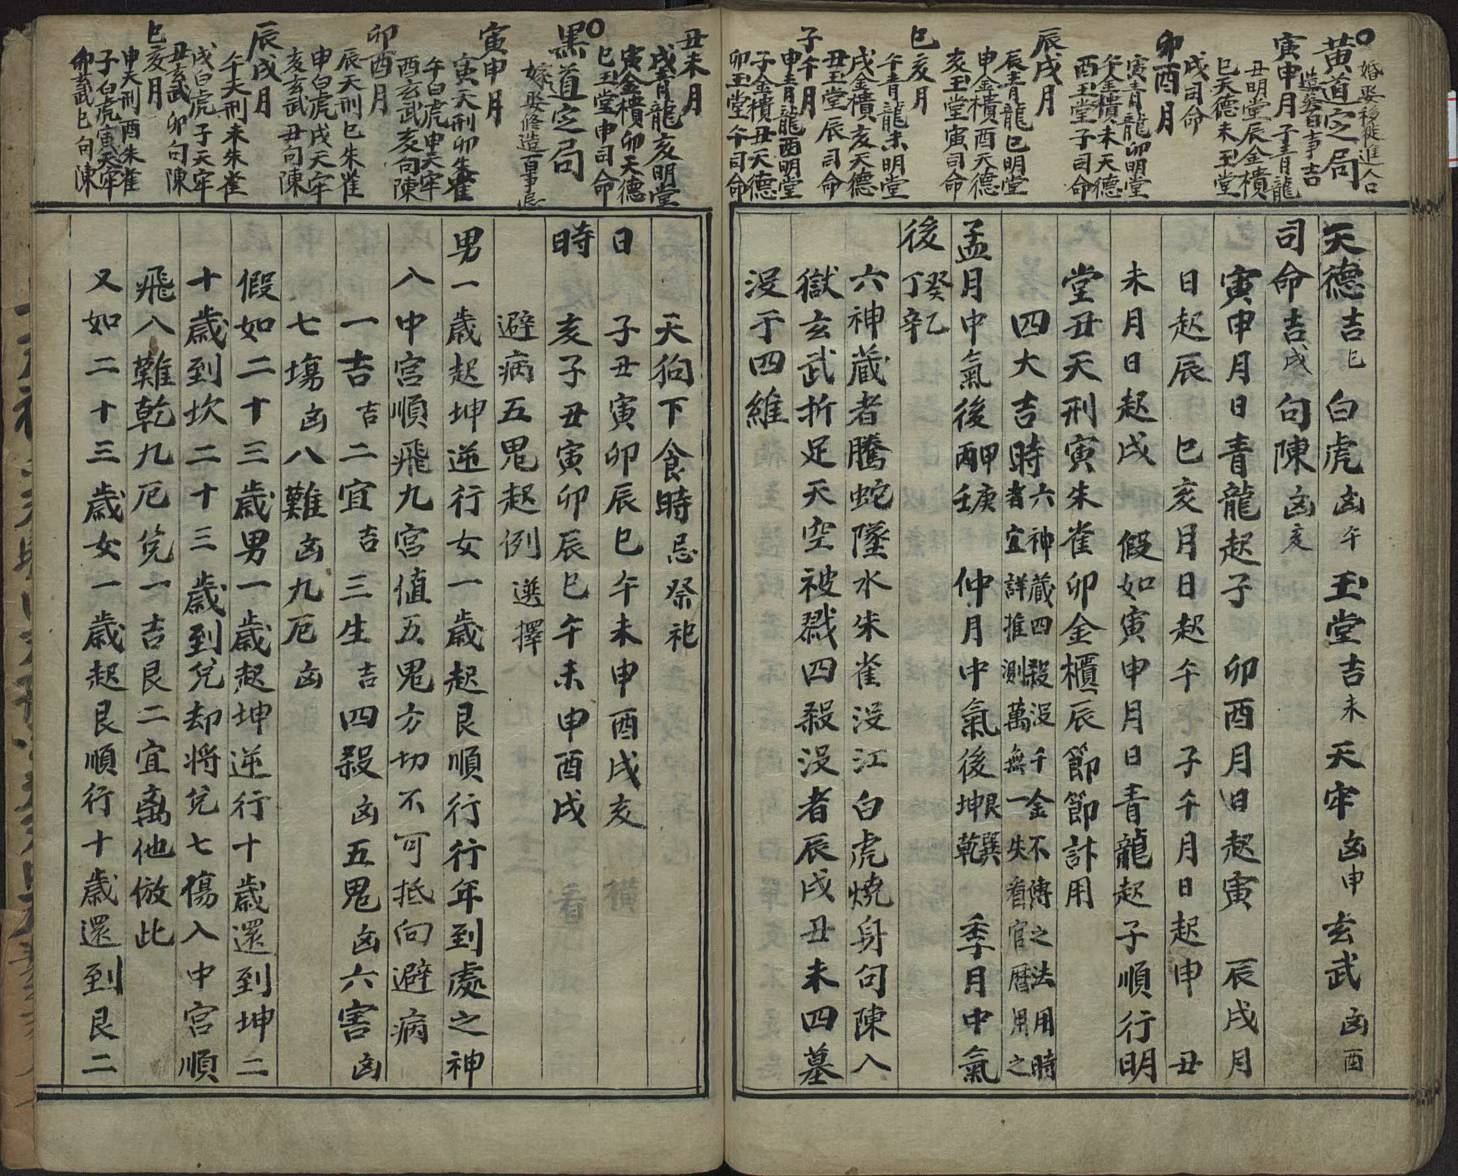 黃道定局 婚娶移徙進人口
造葬百事吉
寅申月 子青龍
丑明堂 辰金樻
巳天德 未玉堂
戌司命
卯酉月
寅青龍 卯明堂
午金樻 未天德
酉玉堂 子司命
辰戌月
辰青龍 巳明堂
申金樻 酉天德
亥玉堂 寅司命
巳亥月
午青龍 未明堂
戌金樻 亥天德
丑玉堂 辰司命
子午月
申青龍 酉明堂
子金樻 丑天德
卯玉堂 午司命
天德吉巳 白虎凶午 玉堂吉未 天牢凶申 玄武凶酉
司命吉戌 句陳凶亥
寅申月日青龍起子 卯酉月日起寅 辰戌月
日起辰 巳亥月日起午 子午月日起申 丑
未月日起戌 假如寅申月日青龍起子順行明
堂丑天刑寅朱雀卯金櫃辰節節訃用
四大吉時 六神藏四殺没千金不傳之法用時
者宜詳推測萬無一失看官曆用之
孟月中氣後甲庚丙壬 仲月中氣後艮巽坤乾 季月中氣
後癸乙丁辛
六神藏者騰蛇墬水朱雀没江白虎燒身句陳入
獄玄武折足天空被戮四殺没者辰戌丑未四墓
没于四維
丑未月
戌青龍 亥明堂
寅金樻 卯天德
巳玉堂 申司命
黑道定局
嫁娶修造百事忌
寅申月
寅天刑 卯朱雀
午白虎 申天牢
酉玄武 亥句陳
卯酉月
辰天刑 巳朱雀
申白虎 戌天牢
亥玄武 丑句陳
辰戌月
午天刑 未朱雀
戌白虎 子天牢
丑玄武 卯句陳
巳亥月
申天刑 酉朱雀
子白虎 寅天牢
卯玄武 巳句陳
天狗下食時 忌祭祀
日 子丑寅卯辰巳午未申酉戌亥
時 亥子丑寅卯辰巳午未申酉戌
避病五鬼起例 選擇
男一歲起坤逆行女一歲起艮順行行年到處之神
入中宮順飛九宮值五鬼方切不可抵向避病
一吉吉二宜吉三生吉四殺凶五鬼凶六害凶
七塲凶八難凶九厄凶
假如二十三歲男一歲起坤逆行十歲還到坤二
十歲到坎二十三歲到兌却將兌七傷入中宮順
飛八難乾九厄兌一吉艮二宜离他倣此
又如二十三歲女一歲起艮順行十歲還到艮二